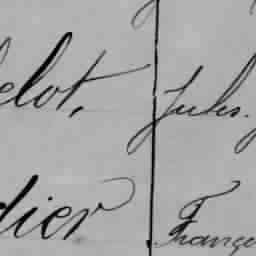 elot, Jules.
dier Franço